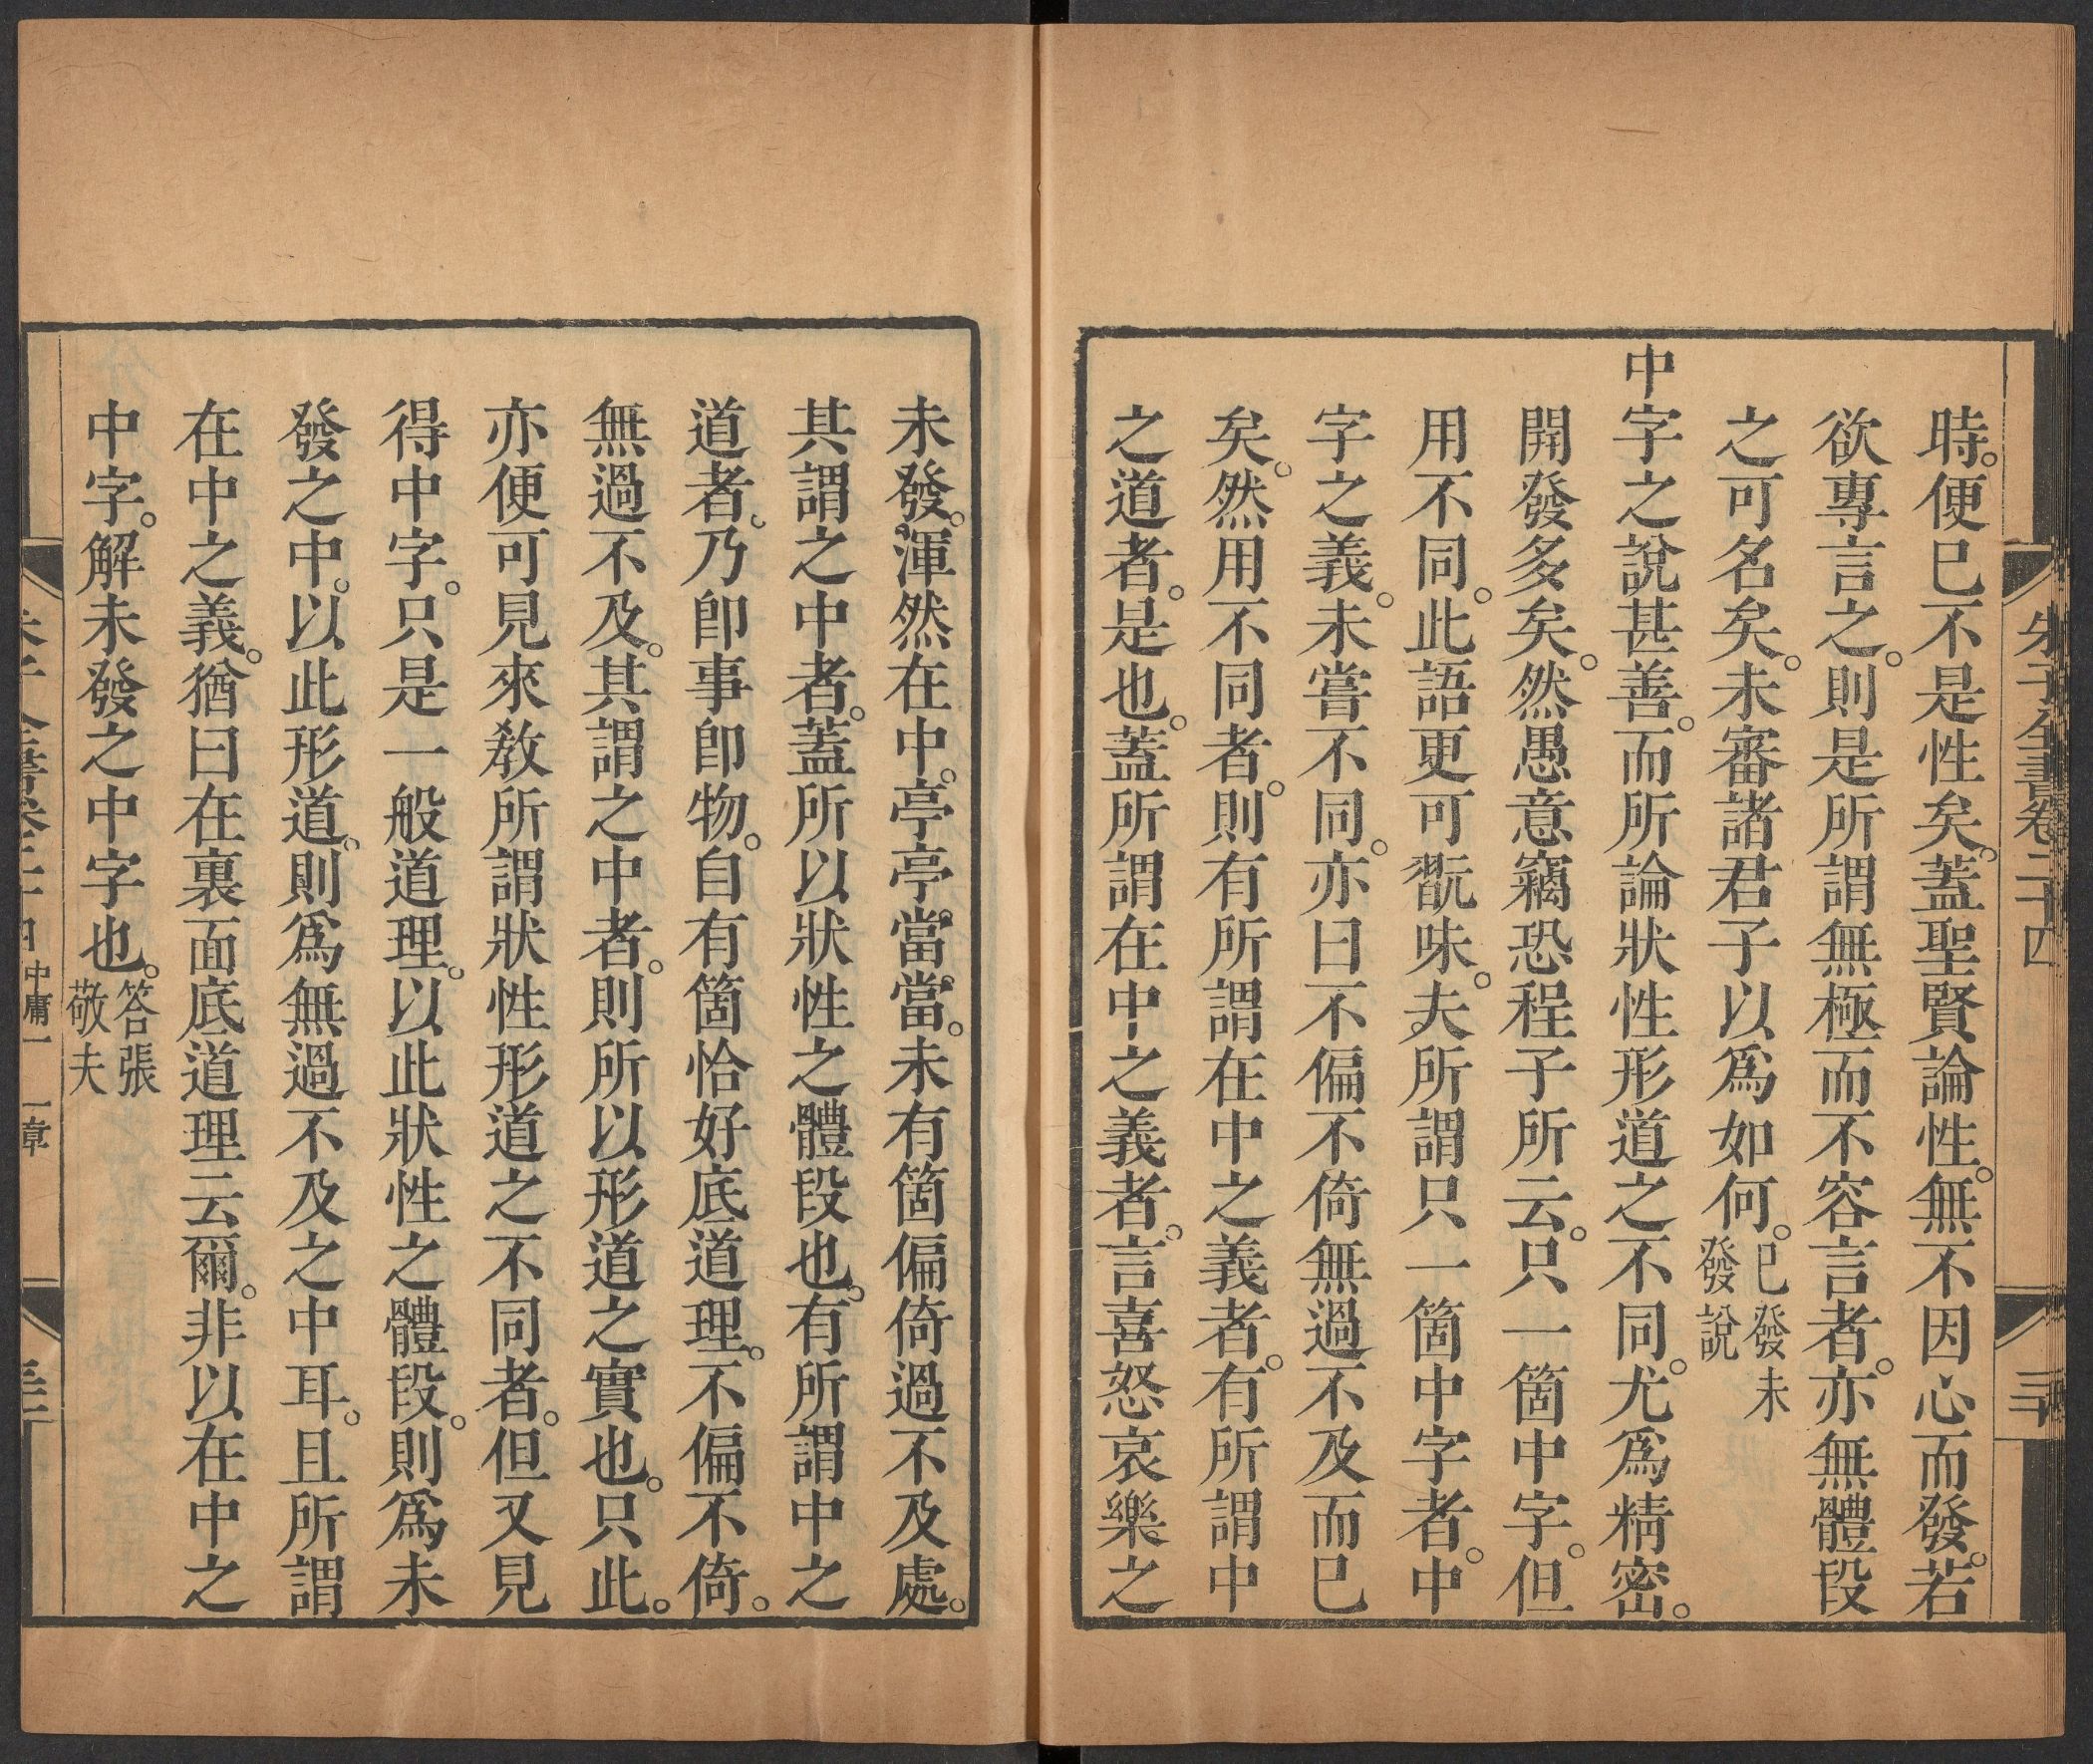 朱子全書卷二十四
三十
時。便已不是性矣。蓋聖賢論性。無不因心而發。若
欲專言之。則是所謂無極而不容言者。亦無體段
之可名矣。未審諸君子以爲如何。已發未發說
中字之說甚善。而所論狀性形道之不同。尤爲精密。
開發多矣。然愚意竊恐程子所云。只一箇中字。但
用不同。此語更可翫味。夫所謂只一箇中字者。中
字之義。未嘗不同。亦曰不偏不倚無過不及而已
矣。然用不同者。則有所謂在中之義者。有所謂中
之道者。是也。蓋所謂在中之義者。言喜怒哀樂之
未發。渾然在中。亭亭當當。未有箇偏倚過不及處。
其謂之中者。蓋所以狀性之體段也。有所謂中之
道者。乃卽事卽物。自有箇恰好底道理。不偏不倚。
無過不及。其謂之中者。則所以形道之實也。只此。
亦便可見來敎所謂狀性形道之不同者。但又見
得中字。只是一般道理。以此狀性之體段。則爲未
發之中。以此形道。則爲無過不及之中耳。且所謂
在中之義。猶曰在裏面底道理云爾。非以在中之
中字。解未發之中字也。答張敬夫
中庸一 一章